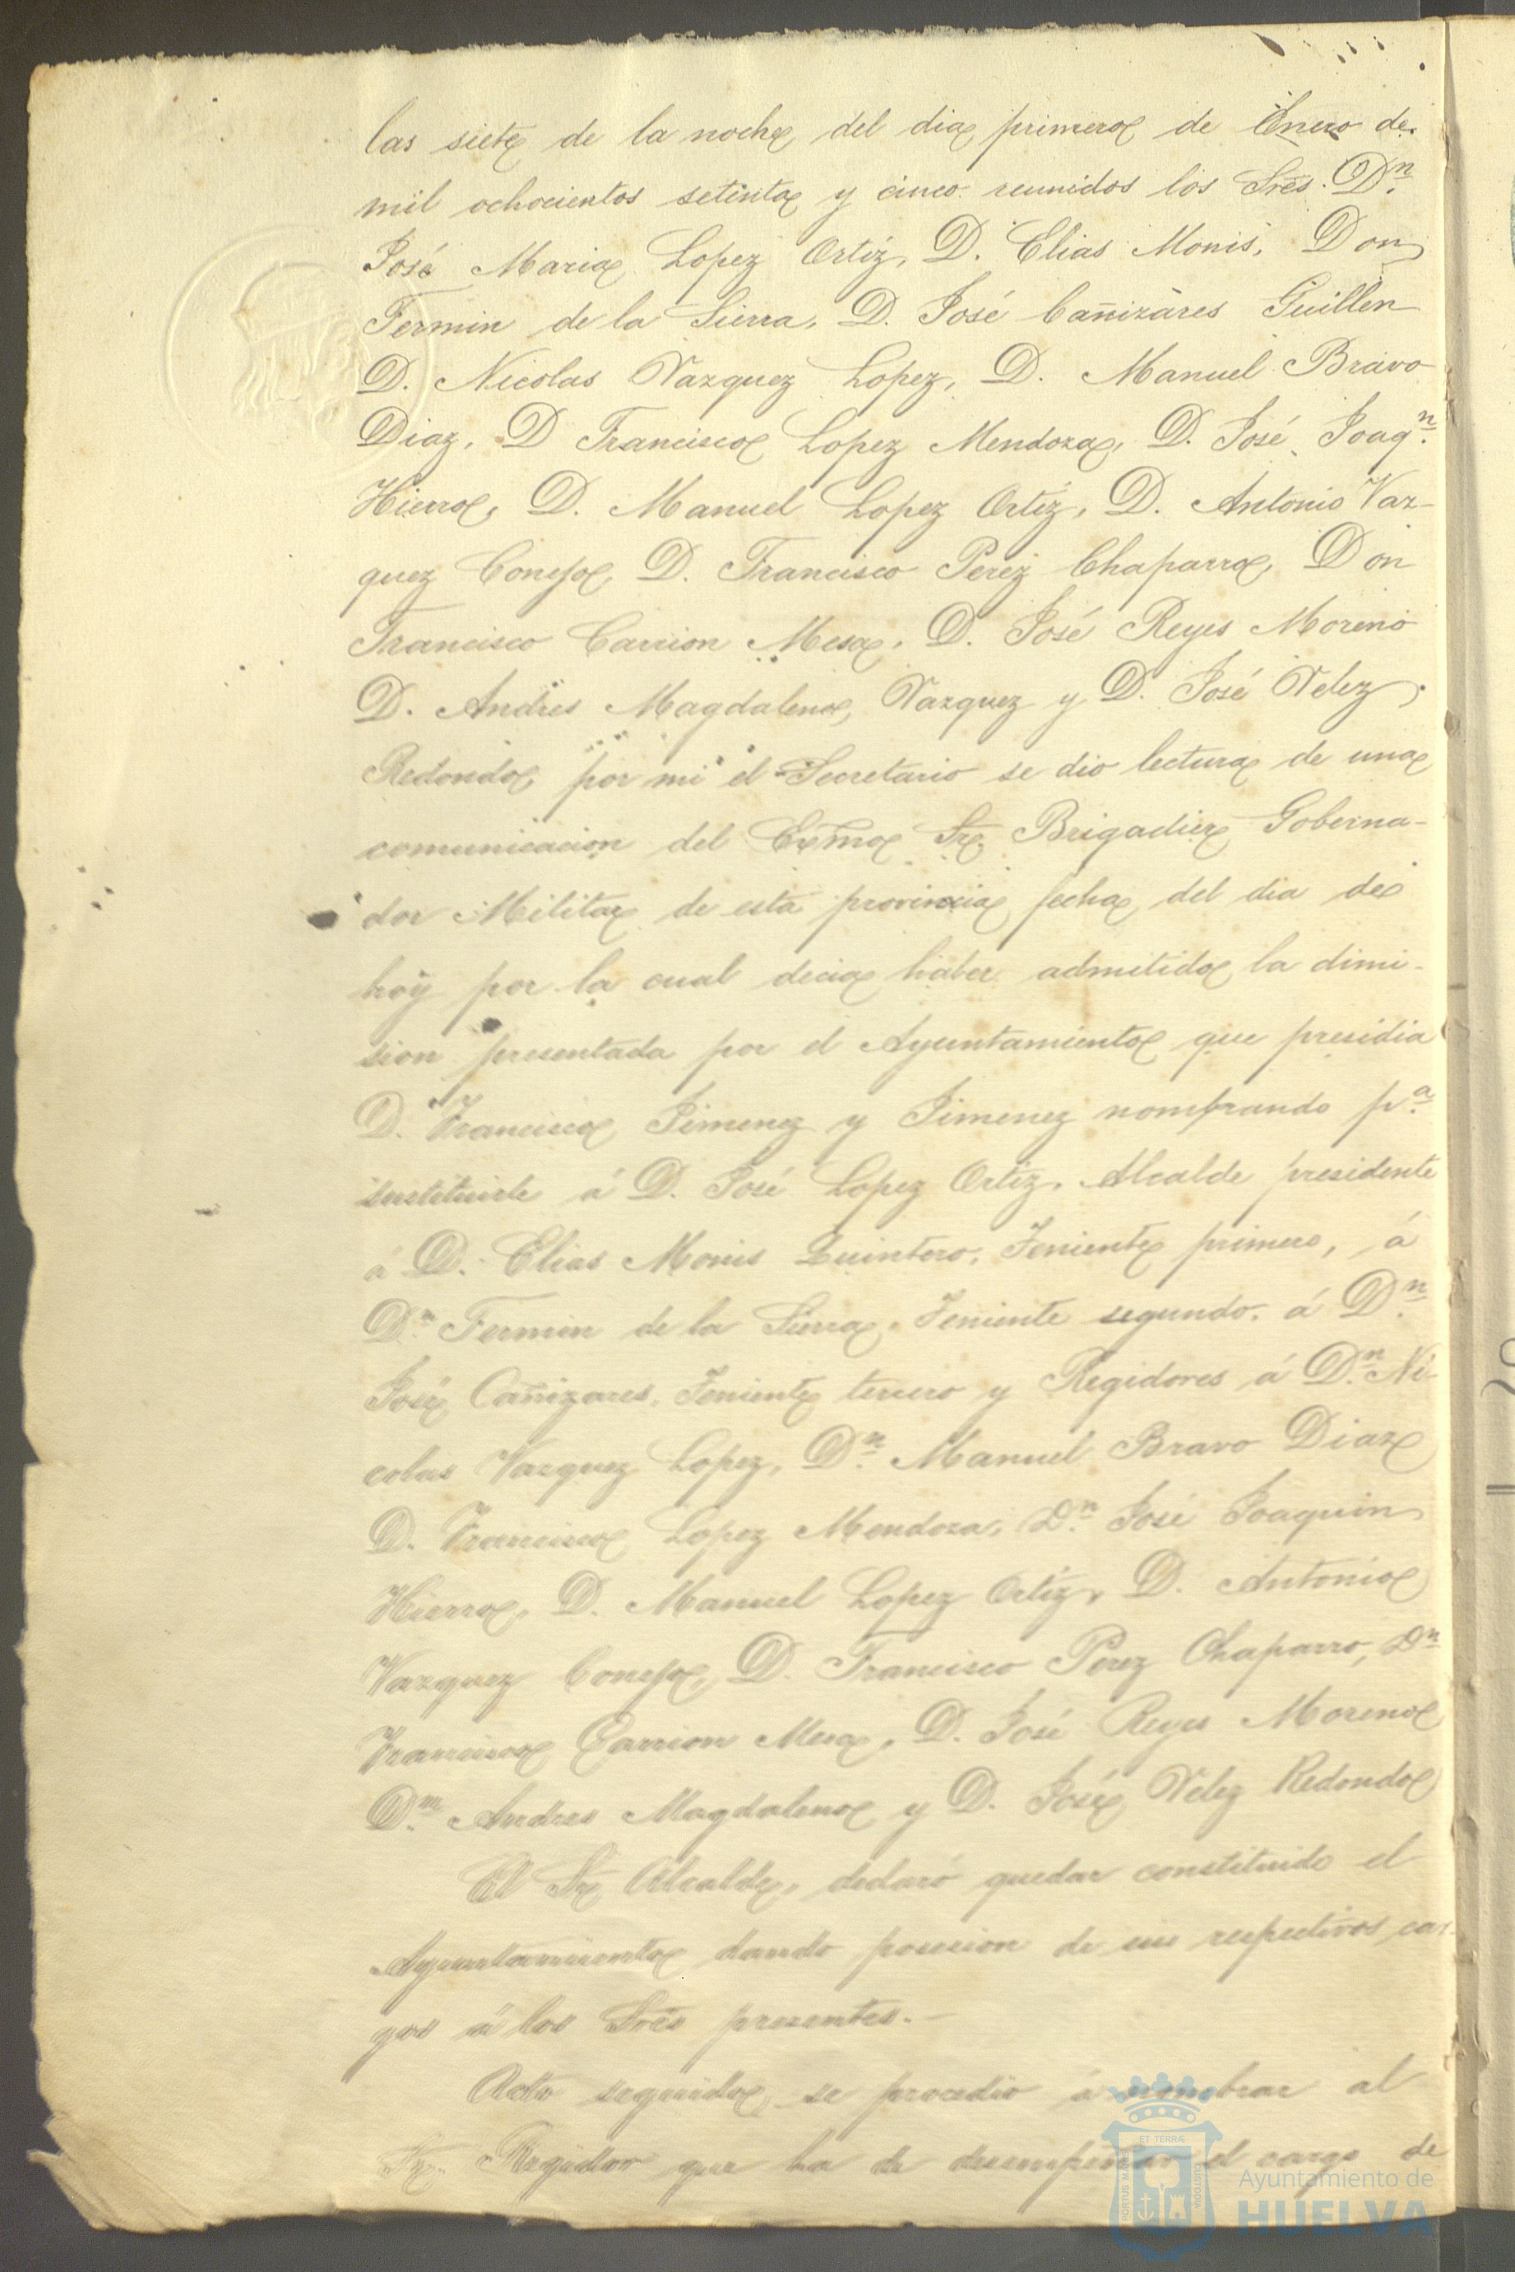 las siete de la noche del dia primero de Enero de
mil ochocientos setenta y cinco reunidos los Sres. Dn.
José Maria Lopez Ortiz, D. Elias Monis, Don
Fermin de la Sierra, D. José Cañizares Guillen
D. Nicolas Vazquez Lopez, D. Manuel Bravo
Diaz, D Francisco Lopez Mendoza, D. José Joaqn.
Hierro, D. Manuel Lopez Ortiz, D. Antonio Vaz-
quez Conejo, D. Francisco Perez Chaparro, Don
Francisco Carrion Mesa, D. José Reyes Moreno
D. Andres Magdalena, Vazquez y D. José Velez
Redondo, por mi el Secretario se dio lectura de una
comunicacion del Exmo Sr. Brigadier Goberna-
dor Militar de esta provincia fecha del dia de
hoy por la cual decia haber admitido la dimi-
sion presentada por el Ayuntamiento que presidia
D. Francisco Jimenez y Jimenez nombrando pa.
sustituirle á D. José Lopez Ortiz, Alcalde presidente
á D. Elias Monis Quintero, Teniente primero, á
Dn. Fermin de la Sierra, Teniente segundo, á Dn.
José Cañizares, Teniente tercero y Regidores á Dn. Ni-
colas Vazquez Lopez, Dn. Manuel Bravo Diaz
D. Francisco Lopez Mendoza, Dn. José Joaquin
Hierro, D. Manuel Lopez Ortiz, D. Antonio
Vazquez Conejo, D. Francisco Perez Chaparro, Dn
Francisco Carrion Mesa, D. José Reyes Moreno
Dn. Andres Magdalena y D. José Velez Redondo
El Sr. Alcalde, declaró quedar constituido el
Ayuntamiento dando posesion de sus respectivos car
gos á los Sres presentes.—
Acto seguido, se procedio á nombrar al
Sr. Regidor que ha de desempeñar el cargo de
ET TERRÆ
PORTUS MARIS
CUSTODIA
Ayuntamiento de
HUELVA